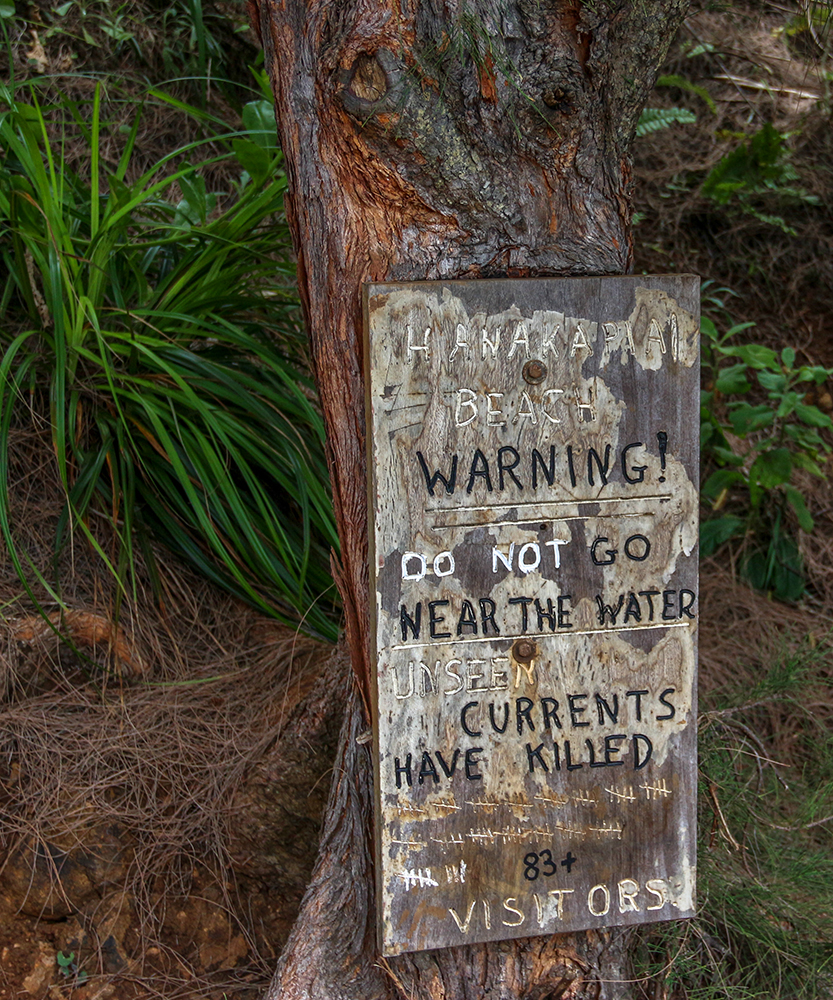 HANAKAPIAI
BEACH
WARNING!
DO NOT GO
NEAR THE WATER
UNSEEN
CURRENTS
HAVE KILLED
83+
VISITORS